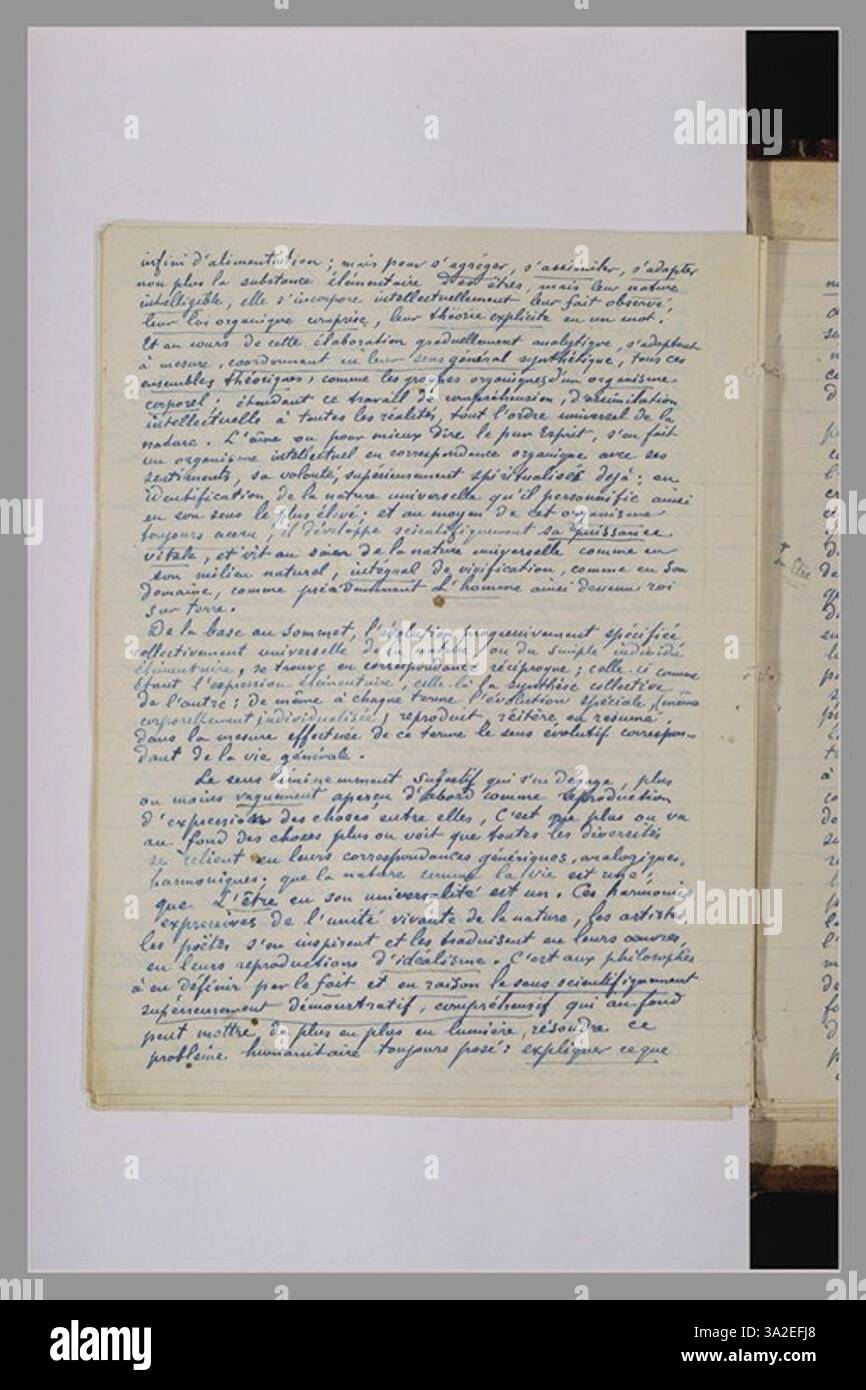 infini d'alimentation ; mais pour s'agréger, s'assimiler, s'adapter
non plus la substance élémentaire des êtres, mais leur nature
intelligible, elle s'incorpore intellectuellement leur fait observé,
leur loi organique comprise, leur théorie explicite en un mot.
Et au cours de cette élaboration graduellement analytique, s'adaptant
à mesure, coordonnant en leur sens général synthétique, tous ces
ensembles théoriques, comme les groupes organiques d'un organisme
corporel ; étendant ce travail de compréhension, d'assimilation
intellectuelle à toutes les réalités, tout l'ordre universel de la
nature. L'âme ou pour mieux dire le pur Esprit, s'en fait
un organisme intellectuel en correspondance organique avec ses
sentiments, sa volonté, supérieurement spiritualisés déjà ; en
identification de la nature universelle qu'il personnifie ainsi
en son sens le plus élevé ; et au moyen de cet organisme
toujours accru, il développe scientifiquement sa puissance
vitale, et vit au sein de la nature universelle comme en
son milieu naturel, intégral de vivification, comme en son
domaine, comme précédemment L'homme ainsi devenu roi
sur terre.
De la base au sommet, l'évolution progressivement spécifiée
collectivement universelle de la nature ou du simple individu
élémentaire, se trouve en correspondance réciproque ; celle-ci comme
étant l'expression élémentaire, celle-là la synthèse collective
de l'autre ; de même à chaque terme l'évolution spéciale, (même
corporellement individualisée) reproduit, réitère en résumé,
dans la mesure effectuée de ce terme le sens évolutif correspon-
dant de la vie générale.
Le sens éminemment Subjectif qui s'en dégage, plus
ou moins vaguement aperçu d'abord comme reproduction
d'expression des choses entre elles, C'est que plus on va
au fond des choses plus on voit que toutes les diversités
se relient en leurs correspondances génériques, analogiques,
harmoniques ; que la nature comme la vie est une ;
que L'être en son universalité est un. Ces harmonies
expressives de l'unité vivante de la nature, les artistes,
les poëtes s'en inspirent et les traduisent en leurs œuvres,
en leurs reproductions d'idéalisme. C'est aux philosophes
à en définir par le fait et en raison le sens scientifiquement
supérieurement démonstratif, compréhensif qui au fond
peut mettre de plus en plus en lumière, résoudre ce
problème humanitaire toujours posé : expliquer ce que
alamy
alamy
3A2EFJ8
www.alamy.com